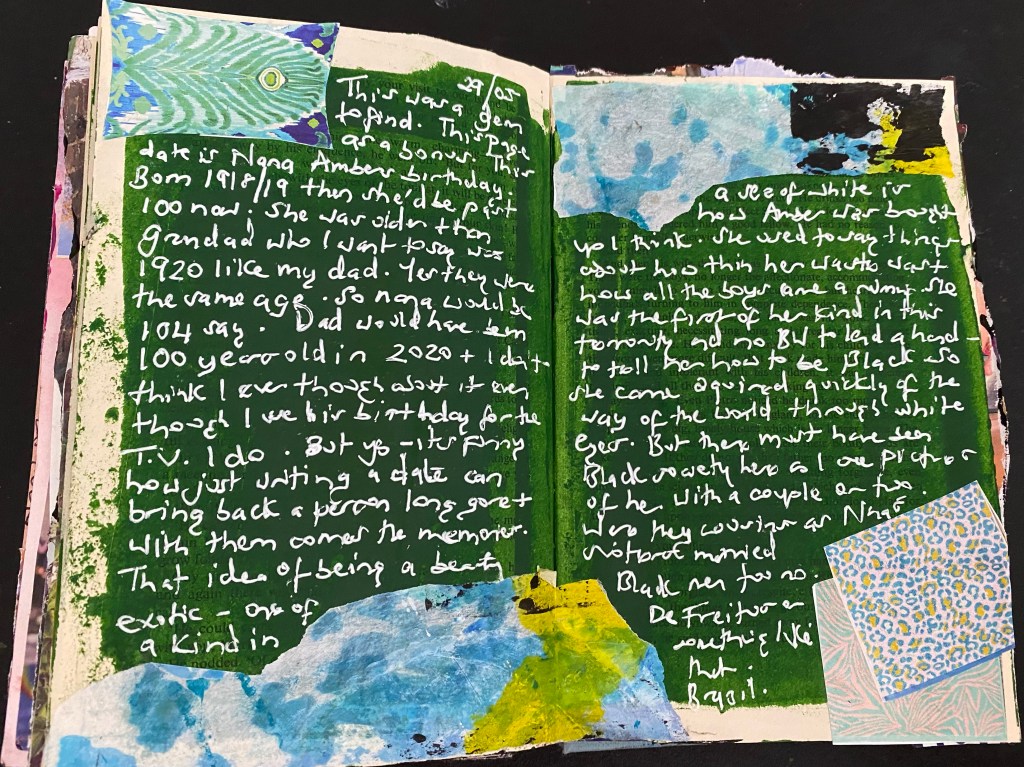 29/05
This was a gem
to find. This page
as a bonus. This
date is Nana Ambers birthday.
Born 1918/19 then she'd be past
100 now. She was older than
Grandad who I want to say was
1920 like my dad. Yes they were
the same age. So nana would be
104 say. Dad would have been
100 years old in 2020 + I don't
think I ever though about it even
though I use his birthday for the
T.V. I do. But yo - its funny
how just writing a date can
bring back a person long gone +
with them comes the memories.
That idea of being a beauty
exotic - one of
a kind in
a sea of white is
how Amber was brought
up I think. She used to say things
about how thin her waist
how all the boys She
was the first of her kind in this
and no to lend a hand -
to tell her how to be Black so
she quickly of the
way of the world through white
eyes. But there must have been
Black society here as I see pictures
of her with a couple or two
were they cousins as
married
Black men too no.
De Freitas or
something like
that.
Brazil.